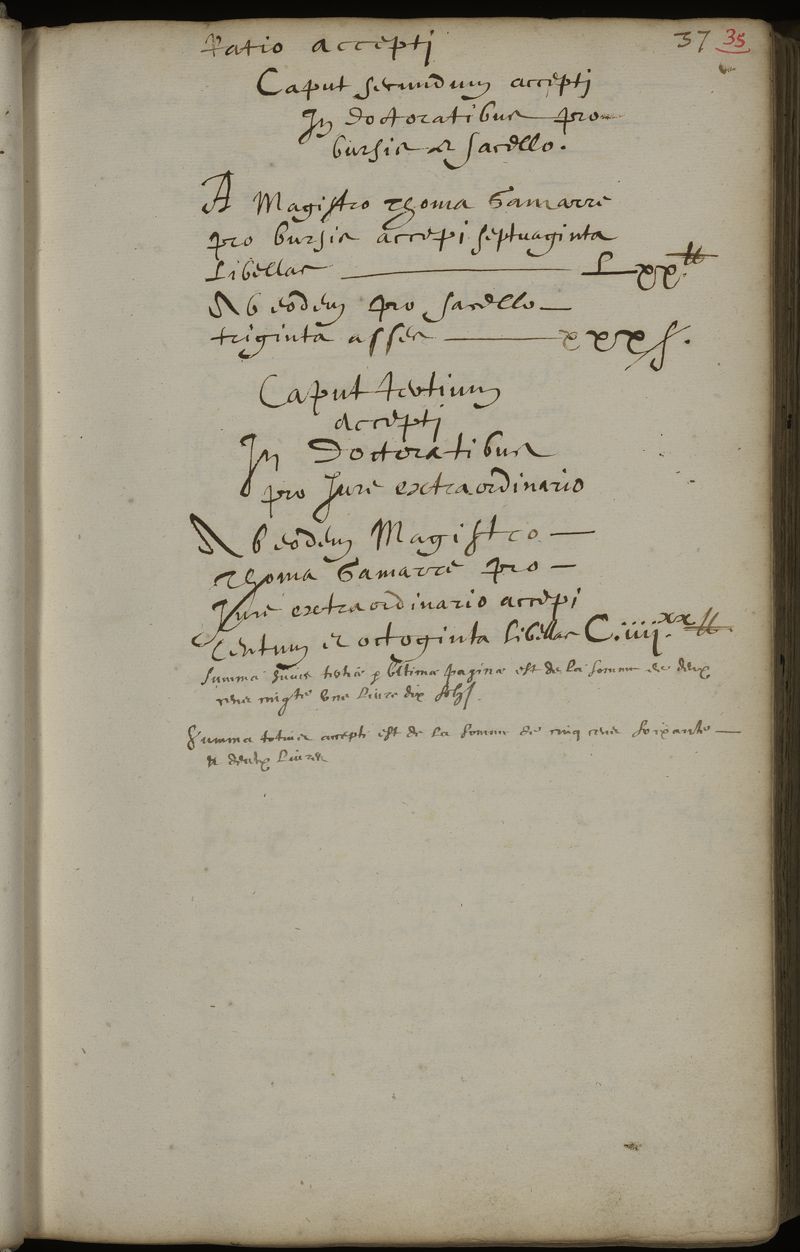 Ratio accepti 37 35
Caput secundum accepti
In doctoratibus pro
bursis et sacello.
A Magistro Thoma Gamarre
pro bursis accepi septuaginta
Libellas L xx ℔
Ab eodem pro sacello
triginta asses xxx s.
Caput tertium
accepti
In Doctoratibus
pro Jure extraordinario
Ab eodem Magistro
Thoma Gamarre pro
Jure extraordinario accepi
Centum et octoginta libellas C.iiii.xx ℔
Summa huius totius p ultima pagina est de la somme de deux
cens cinqte une Livre dix solz
Summa totius accepti est de la somme de cinq cens soixante
et deux Livres